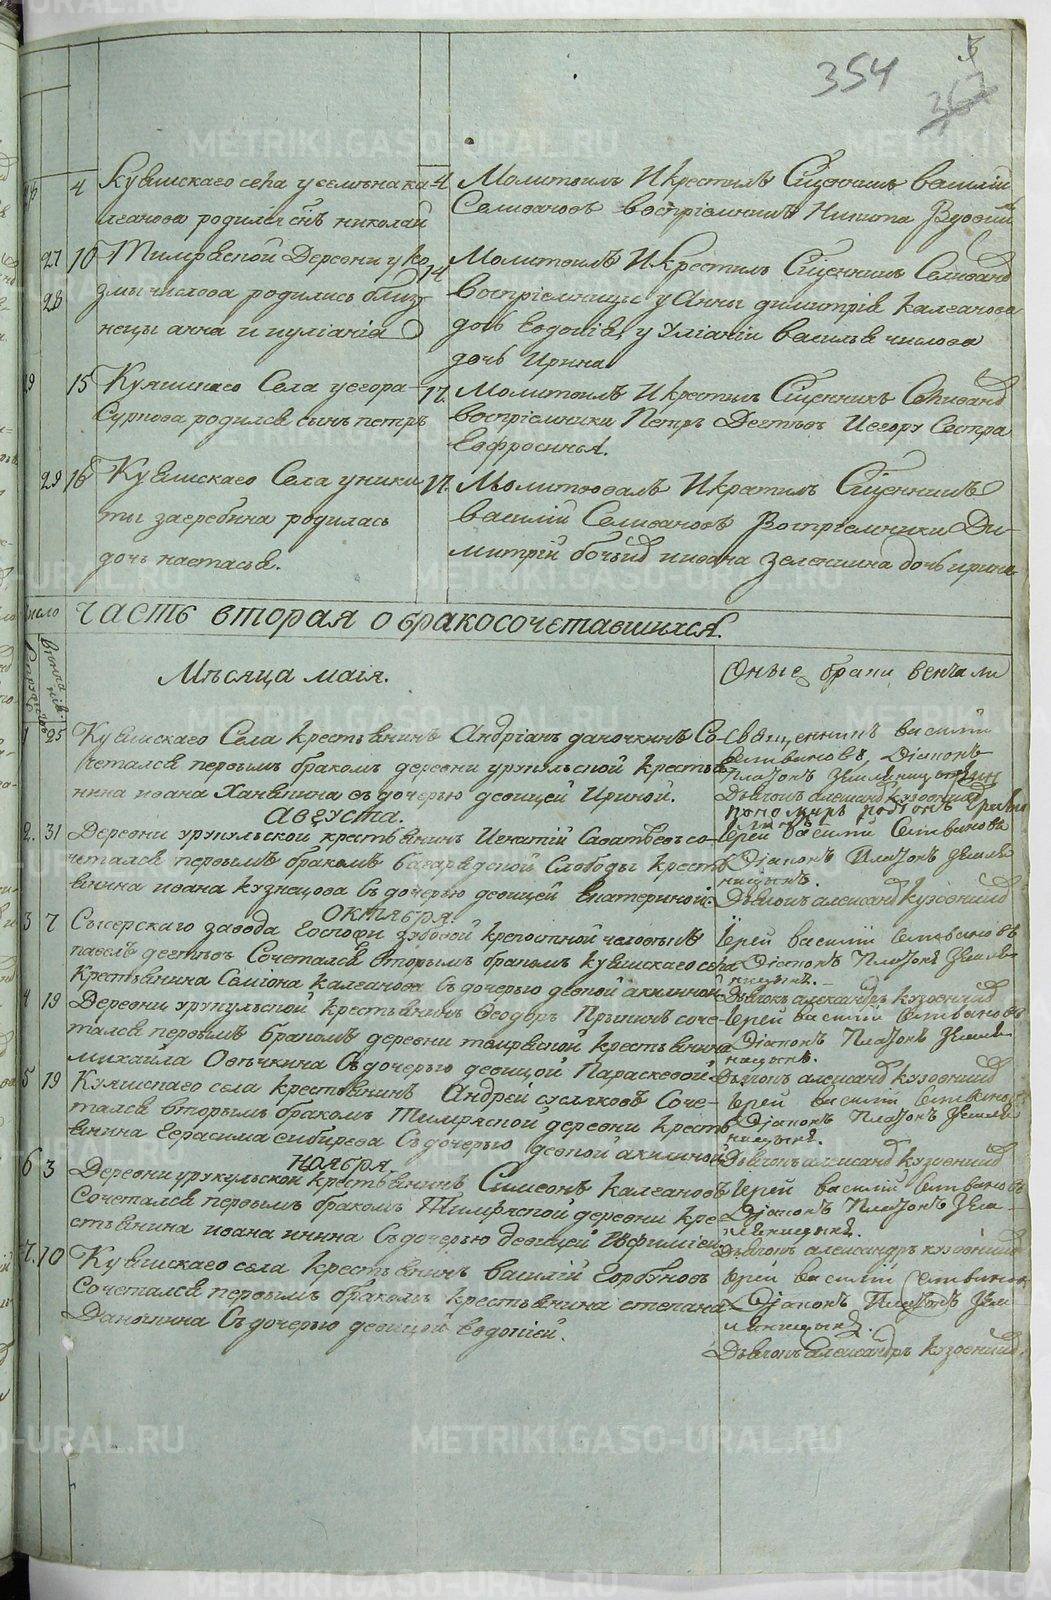 354
26 4 Куяшскаго села у семена ка-
леанова родился сынъ николай
4. Молитвилъ И крестилъ Священникъ василий
Селивановъ воспріемникъ Никита
27 10 Тимряской Деревни у ко
28 змы числова родились близ-
нецы анна и иуліаніа
14 Молитвилъ И крестилъ Священникъ Селиванов
воспріемницы у Анны димитрія калеанова
дочь евдокія, у Уліаніи василья числова
дочь Ирина
29 15 Куяшскаго Села у егора
Суркова родился сынъ петръ
17. Молитвилъ И крестилъ Священникъ Селиванов
воспріемники Петръ Дегтевъ Иегору Сестра
Ефросинья.
29 16 Куяшскаго Села у ники
ты загребина родилась
дочь настасья.
17. Молитвовалъ И крстилъ Священникъ
василий Селивановъ Воспріемники Ди-
митрій иивана Зеленкина дочь ирина
число часть вторая о бракосочетавшихся.
Мѣсяца маія.
Оные браки венчали
1 25 Куяшскаго Села крестьянинъ Андріанъ даночкинъ Со-
четался первымъ бракомъ деревни урукульской крестья
нина ивана Ханьпина съ дочерью девицей Ириной.
Священникъ василий
Селивановъ, Діаконъ
Платонъ Земляницынъ
Дьячокъ александ кузовний
пономарь родіонъ
Августа.
2. 31 Деревни урукульской крестьянинъ Игнатій Саватеевъ со-
четался первымъ бракомъ багарядской Слободы кресть
янина ивана кузнецова Съ дочерью девицей Екатериной.
Іерей василий Селивановъ
Діаконъ Платонъ Земля
ницынъ.
Дьячокъ александ кузовний
Октября.
3 7 Сысерскаго завода Госпожи зубовой крепостной человекъ
павелъ дегтевъ Сочетался вторымъ бракомъ куяшскаго села
Крестьянина Симіона калеанова Съ дочерью девкой акилиной
Іерей василий Селивановъ
Діаконъ Платонъ Земля
ницынъ.
Дьячокъ александръ кузовний
4 19 Деревни урукульской крестьянинъ Феодоръ Пряхинъ соче-
тался первымъ бракомъ деревни тимряской крестьянина
михаила Овечкина Съ дочерью девицой Параскевой
Іерей василий Селивановъ
Діаконъ Платонъ Земля
ницынъ.
Дьячокъ александ кузовний
5 19 Куяшскаго села крестьянинъ Андрей сусляковъ Соче-
тался вторымъ бракомъ Тимряской деревни кресть
янина Герасима сибирева Съ дочерью девкой акилиной
Іерей василий Селиванов
Діаконъ Платонъ Земля
ницынъ.
Дьячокъ александ кузовний
Ноября
6 3 Деревни урукульской крестьянинъ Симеонъ калеановъ
Сочетался первымъ бракомъ Тимряской деревни кре
стьянина ивана инина Съ дочерью девицей Евфиміей
Іерей василий Селивановъ
Діаконъ Платонъ Зем-
ляницынъ.
Дьячокъ александръ кузовний
7. 10 Куяшскаго села крестьянинъ василий Горбуновъ
Сочетался первымъ бракомъ крестьянина степана
Данькина Съ дочерью девицой евдокией.
Іерей василий Селиванов
Діаконъ Платонъ Зем-
ляницынъ.
Дьячокъ александръ кузовний.